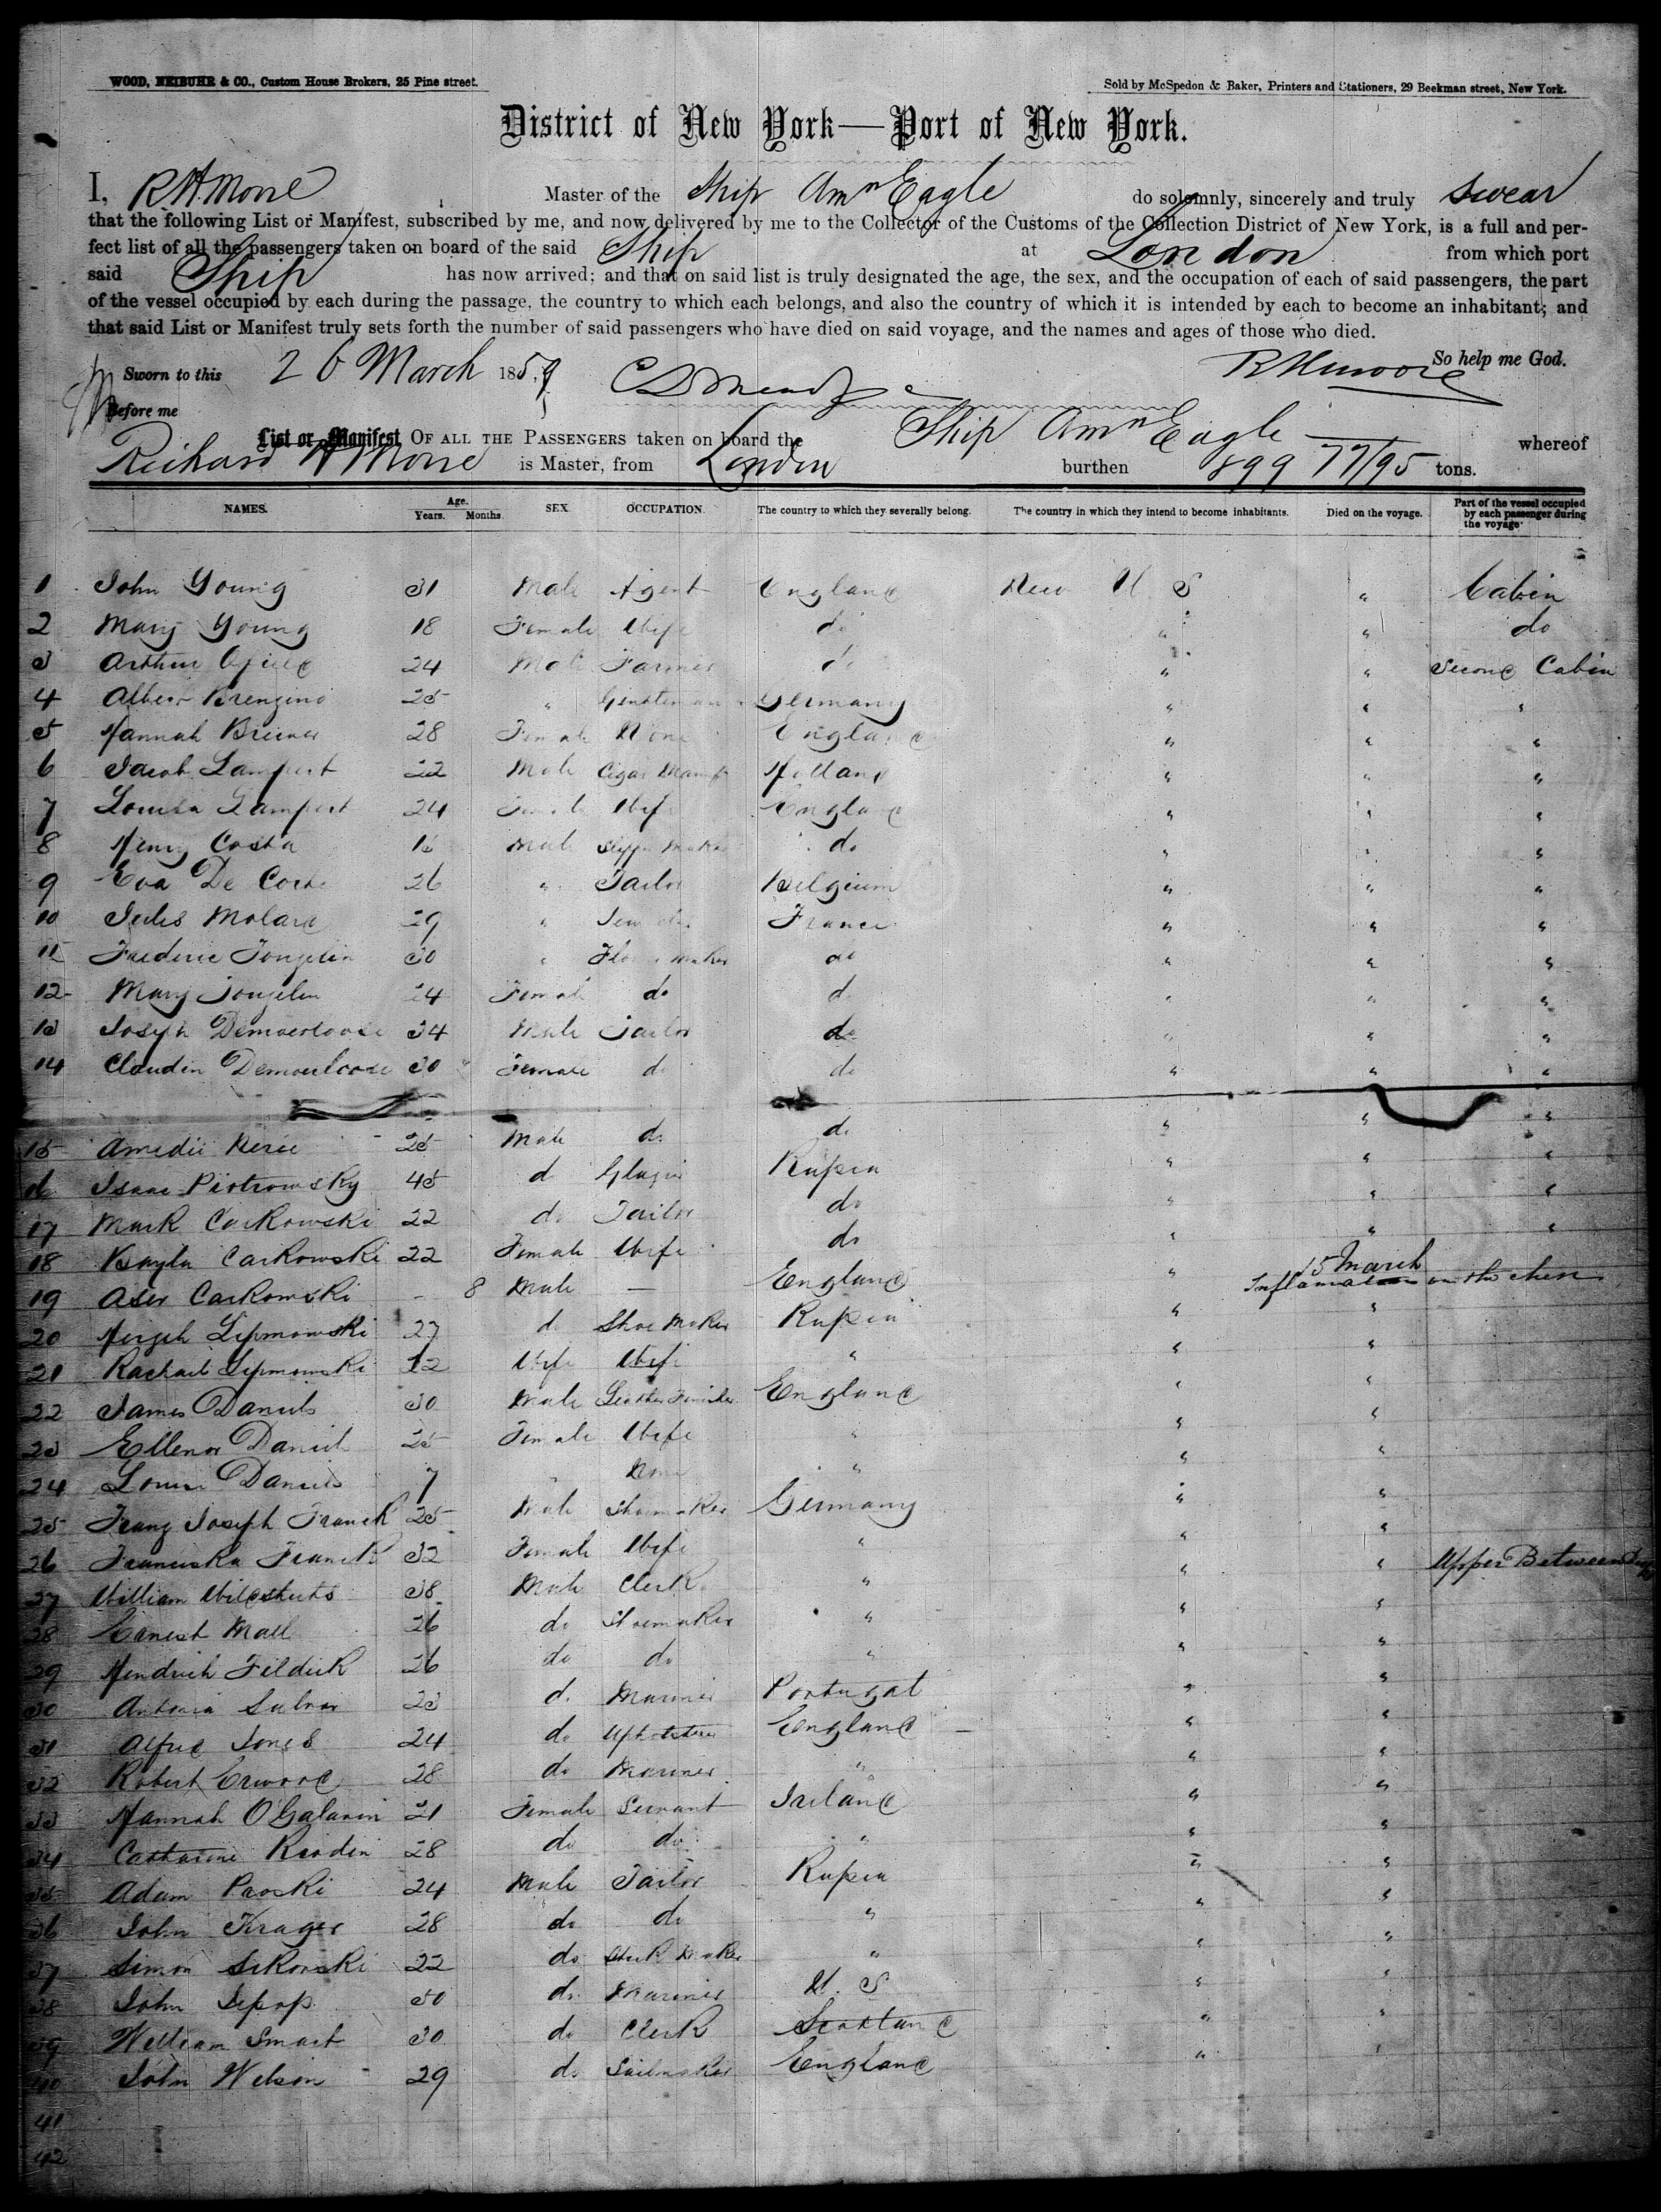 WOOD, NEIBUHR & CO., Custom House Brokers, 25 Pine street.
Sold by McSpedon & Baker, Printers and Stationers, 29 Beekman street, New York.
District of New York—Port of New York.
I, R H Morse Master of the Ship Amn Eagle do solemnly, sincerely and truly swear
that the following List or Manifest, subscribed by me, and now delivered by me to the Collector of the Customs of the Collection District of New York, is a full and per-
fect list of all the passengers taken on board of the said Ship at London from which port
said Ship has now arrived; and that on said list is truly designated the age, the sex, and the occupation of each of said passengers, the part
of the vessel occupied by each during the passage, the country to which each belongs, and also the country of which it is intended by each to become an inhabitant; and
that said List or Manifest truly sets forth the number of said passengers who have died on said voyage, and the names and ages of those who died.
So help me God.
Sworn to this 26 March 1859
Before me
List or Manifest OF ALL THE PASSENGERS taken on board the Ship Amn Eagle whereof
Richard H Morse is Master, from London burthen 899 77/95 tons.
NAMES. Age. Years. Months. SEX. OCCUPATION. The country to which they severally belong. The country in which they intend to become inhabitants. Died on the voyage. Part of the vessel occupied by each passenger during the voyage
1 John Young 31 Male Agent England New U S " Cabin
2 Mary Young 18 Female Wife do " " do
3 Arthur 24 Male Farmer do " " Second Cabin
4 Albert 25 " Gentleman Germany " " "
5 Hannah 28 Female None England " " "
6 Jacob Lampert 22 Male Cigar Manf Holland " " "
7 Louisa Lampert 24 Female Wife England " " "
8 Henry Costa 16 Male Slipper Maker do " " "
9 Eva De Cock 26 " Tailor Belgium " " "
10 Jules Molard 29 " France " " "
11 Frederic Jongelin 30 " Flower Maker do " " "
12 Mary Jongelin 24 Female do do " " "
13 Joseph 34 Male Tailor do " " "
14 Claudin 30 Female do do " " "
15 Amedii 25 Male do do " " "
16 Isaac Piotrowsky 45 d Glazier Russia " " "
17 Mark Carkowski 22 do Tailor do " " "
18 Bayla Carkowski 22 Female Wife do " " "
19 Aser Carkowski - 8 Male — England " 15 March Inflamation on the chest
20 Hirsch Lipmowski 27 d Shoe Maker Russia " "
21 Rachael Lipmowski 22 Wife Wife " " "
22 James Daniels 30 Male Leather Finisher England " "
23 Ellenor Daniels 25 Female Wife " " "
24 Louisa Daniels 7 None " " "
25 Franz Joseph Franck 25 Male Shoemaker Germany " "
26 Franciska Franck 32 Female Wife " " "
27 William 38 Male Clerk " " " Upper Between Deck
28 Ernest Mall 26 do Shoemaker " " "
29 Hendrich Fildick 26 do do " " "
30 Antonia 23 do Mariner Portugal " "
31 Alfred Jones 24 do Upholsterer England " "
32 Robert Erwood 28 do Mariner " " "
33 Hannah O'Galavin 21 Female Servant Ireland " "
34 Catharine Riodin 28 do do " " "
35 Adam Paoski 24 Male Tailor Russia " "
36 John Krager 28 do do " " "
37 Simon Sikorski 22 do Maker " " "
38 John 50 do Mariner U. S " "
39 William Smart 30 do Clerk Scotland " "
40 John Wilson 29 do Sailmaker England " "
41
42